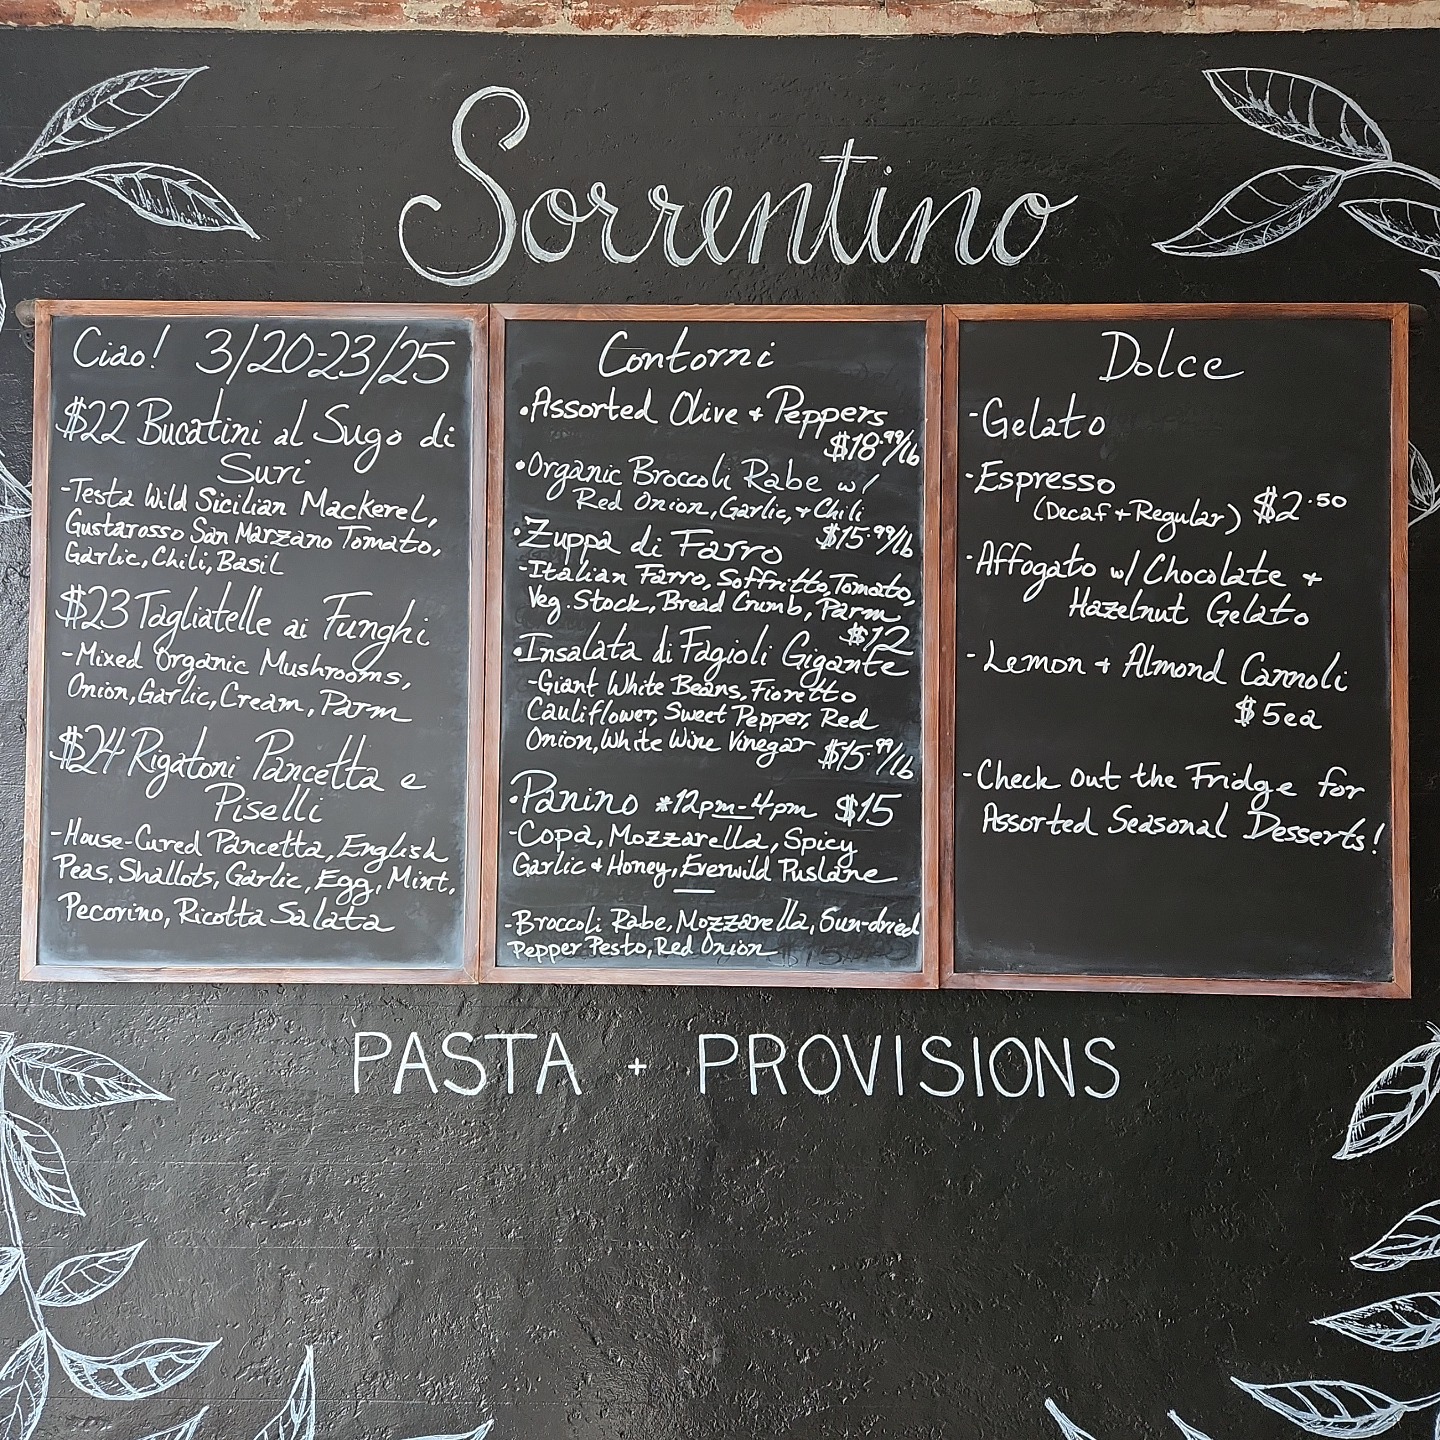 Sorrentino
Ciao! 3/20-23/25
$22 Bucatini al Sugo di
Suri
-Testa Wild Sicilian Mackerel,
Gustarosso San Marzano Tomato,
Garlic, Chili, Basil
$23 Tagliatelle ai Funghi
-Mixed Organic Mushrooms,
Onion, Garlic, Cream, Parm
$24 Rigatoni Pancetta e
Piselli
-House-Cured Pancetta, English
Peas, Shallots, Garlic, Egg, Mint,
Pecorino, Ricotta Salata
Contorni
•Assorted Olive + Peppers
$18.99/lb
•Organic Broccoli Rabe w/
Red Onion, Garlic, + Chili
$15.99/lb
•Zuppa di Farro
-Italian Farro, Soffritto, Tomato,
Veg. Stock, Bread Crumb, Parm
$12
•Insalata di Fagioli Gigante
-Giant White Beans, Fioretto
Cauliflower, Sweet Pepper, Red
Onion, White Wine Vinegar $15.99/lb
•Panino *12pm-4pm $15
-Copa, Mozzarella, Spicy
Garlic + Honey, Everwild Puslane
-Broccoli Rabe, Mozzarella, Sun-dried
Pepper Pesto, Red Onion
Dolce
-Gelato
-Espresso
(Decaf + Regular) $2.50
-Affogato w/ Chocolate +
Hazelnut Gelato
-Lemon + Almond Cannoli
$5ea
-Check out the Fridge for
Assorted Seasonal Desserts!
PASTA + PROVISIONS